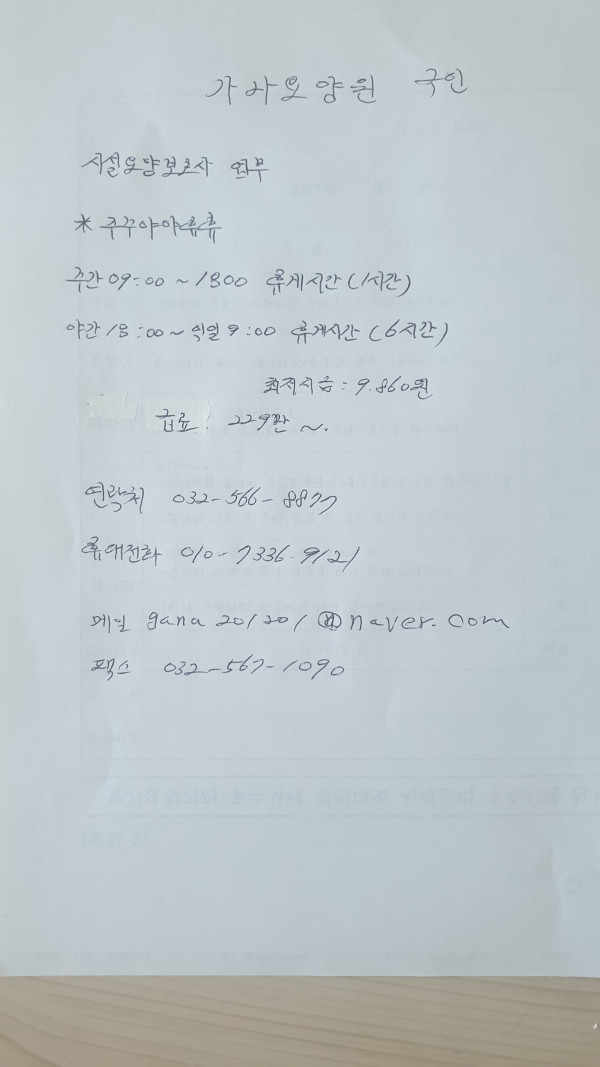 가나요양원 구인
시설요양보호사
* 주주야야휴휴
주간 09:00 ~ 1800 휴게시간 (1시간)
야간 18:00 ~ 익일 9:00 휴게시간 (6시간)
최저시급 : 9.860원
급료 : 229만 ~.
연락처 032-566-8877
휴대전화 010-7336-9121
메일 gana 201201 @naver.com
팩스 032-567-1090